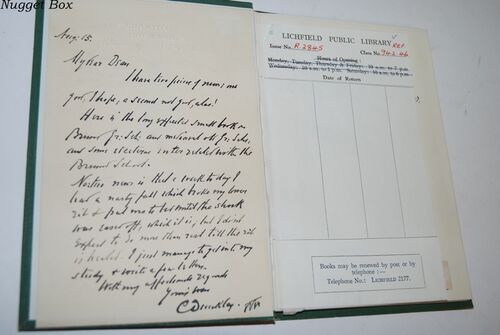 Nugget Box
Aug. 15.
My dear Dean
I have two pieces of news; one
good, I hope, a second not good, alas!
Here is the long expected small book on
School.
news is that a week to day I
had a nasty fall which broke my lower
rib & put me to bed until the shock
was over, which it is, but I don't
expect to do more than rest till the rib
is healed. I just manage to get into my
study & write a few letters.
With my affectionate regards
Yours
LICHFIELD PUBLIC LIBRARY
REF.
Issue No. R 2845
Class No. 942.46
Hours of Opening:
Monday, Tuesday, Thursday & Friday: 10 a.m. to 7 p.m.
Wednesday: 10 a.m. to 1 p.m. Saturday: 10 a.m. to 6 p.m.
Date of Return
Books may be renewed by post or by
telephone :—
Telephone No.: LICHFIELD 2177.